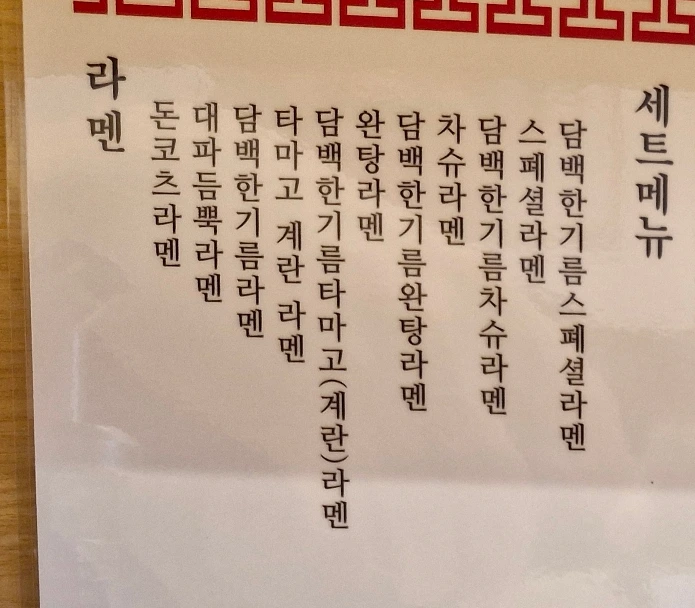 라멘
돈코츠라멘
대파듬뿍라멘
담백한기름라멘
타마고 계란 라멘
담백한기름타마고(계란)라멘
완탕라멘
담백한기름완탕라멘
차슈라멘
담백한기름차슈라멘
스페셜라멘
담백한기름스페셜라멘
세트메뉴